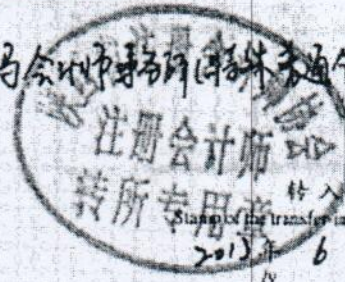 马会计师事务所(特殊普通合
协会
注册会计师
转所专用章
转入
Stamp of the transfer-in
2013年 6